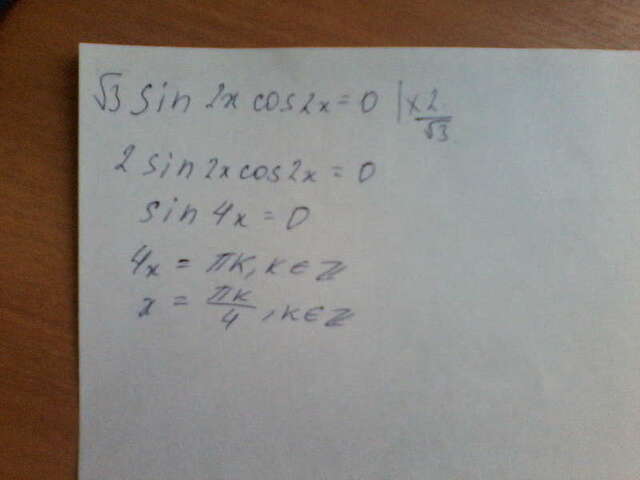 √3 sin 2x cos2x = 0 | × 2/√3
2 sin 2x cos 2x = 0
sin 4x = 0
4x = πk, k ∈ ℤ
x = πk/4, k ∈ ℤ